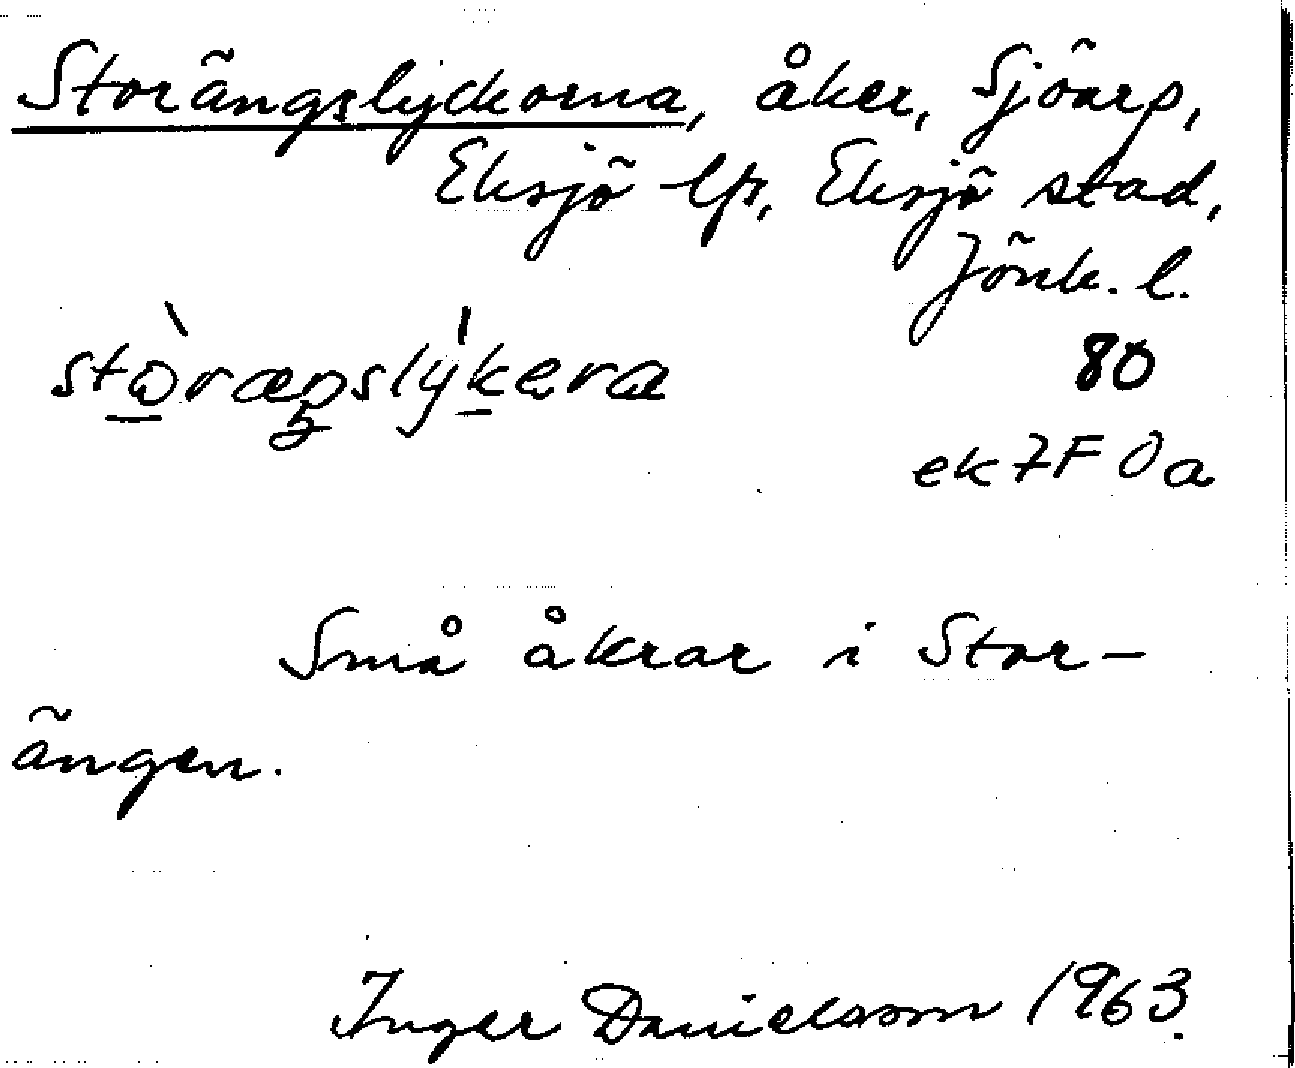 Storängslyckorna, åker, Sjöarp,
Eksjö lfs, Eksjö stad,
Jönk. l.
80
ek 7F 0a
Små åkrar i Stor-
ängen.
Inger Danielsson 1963.